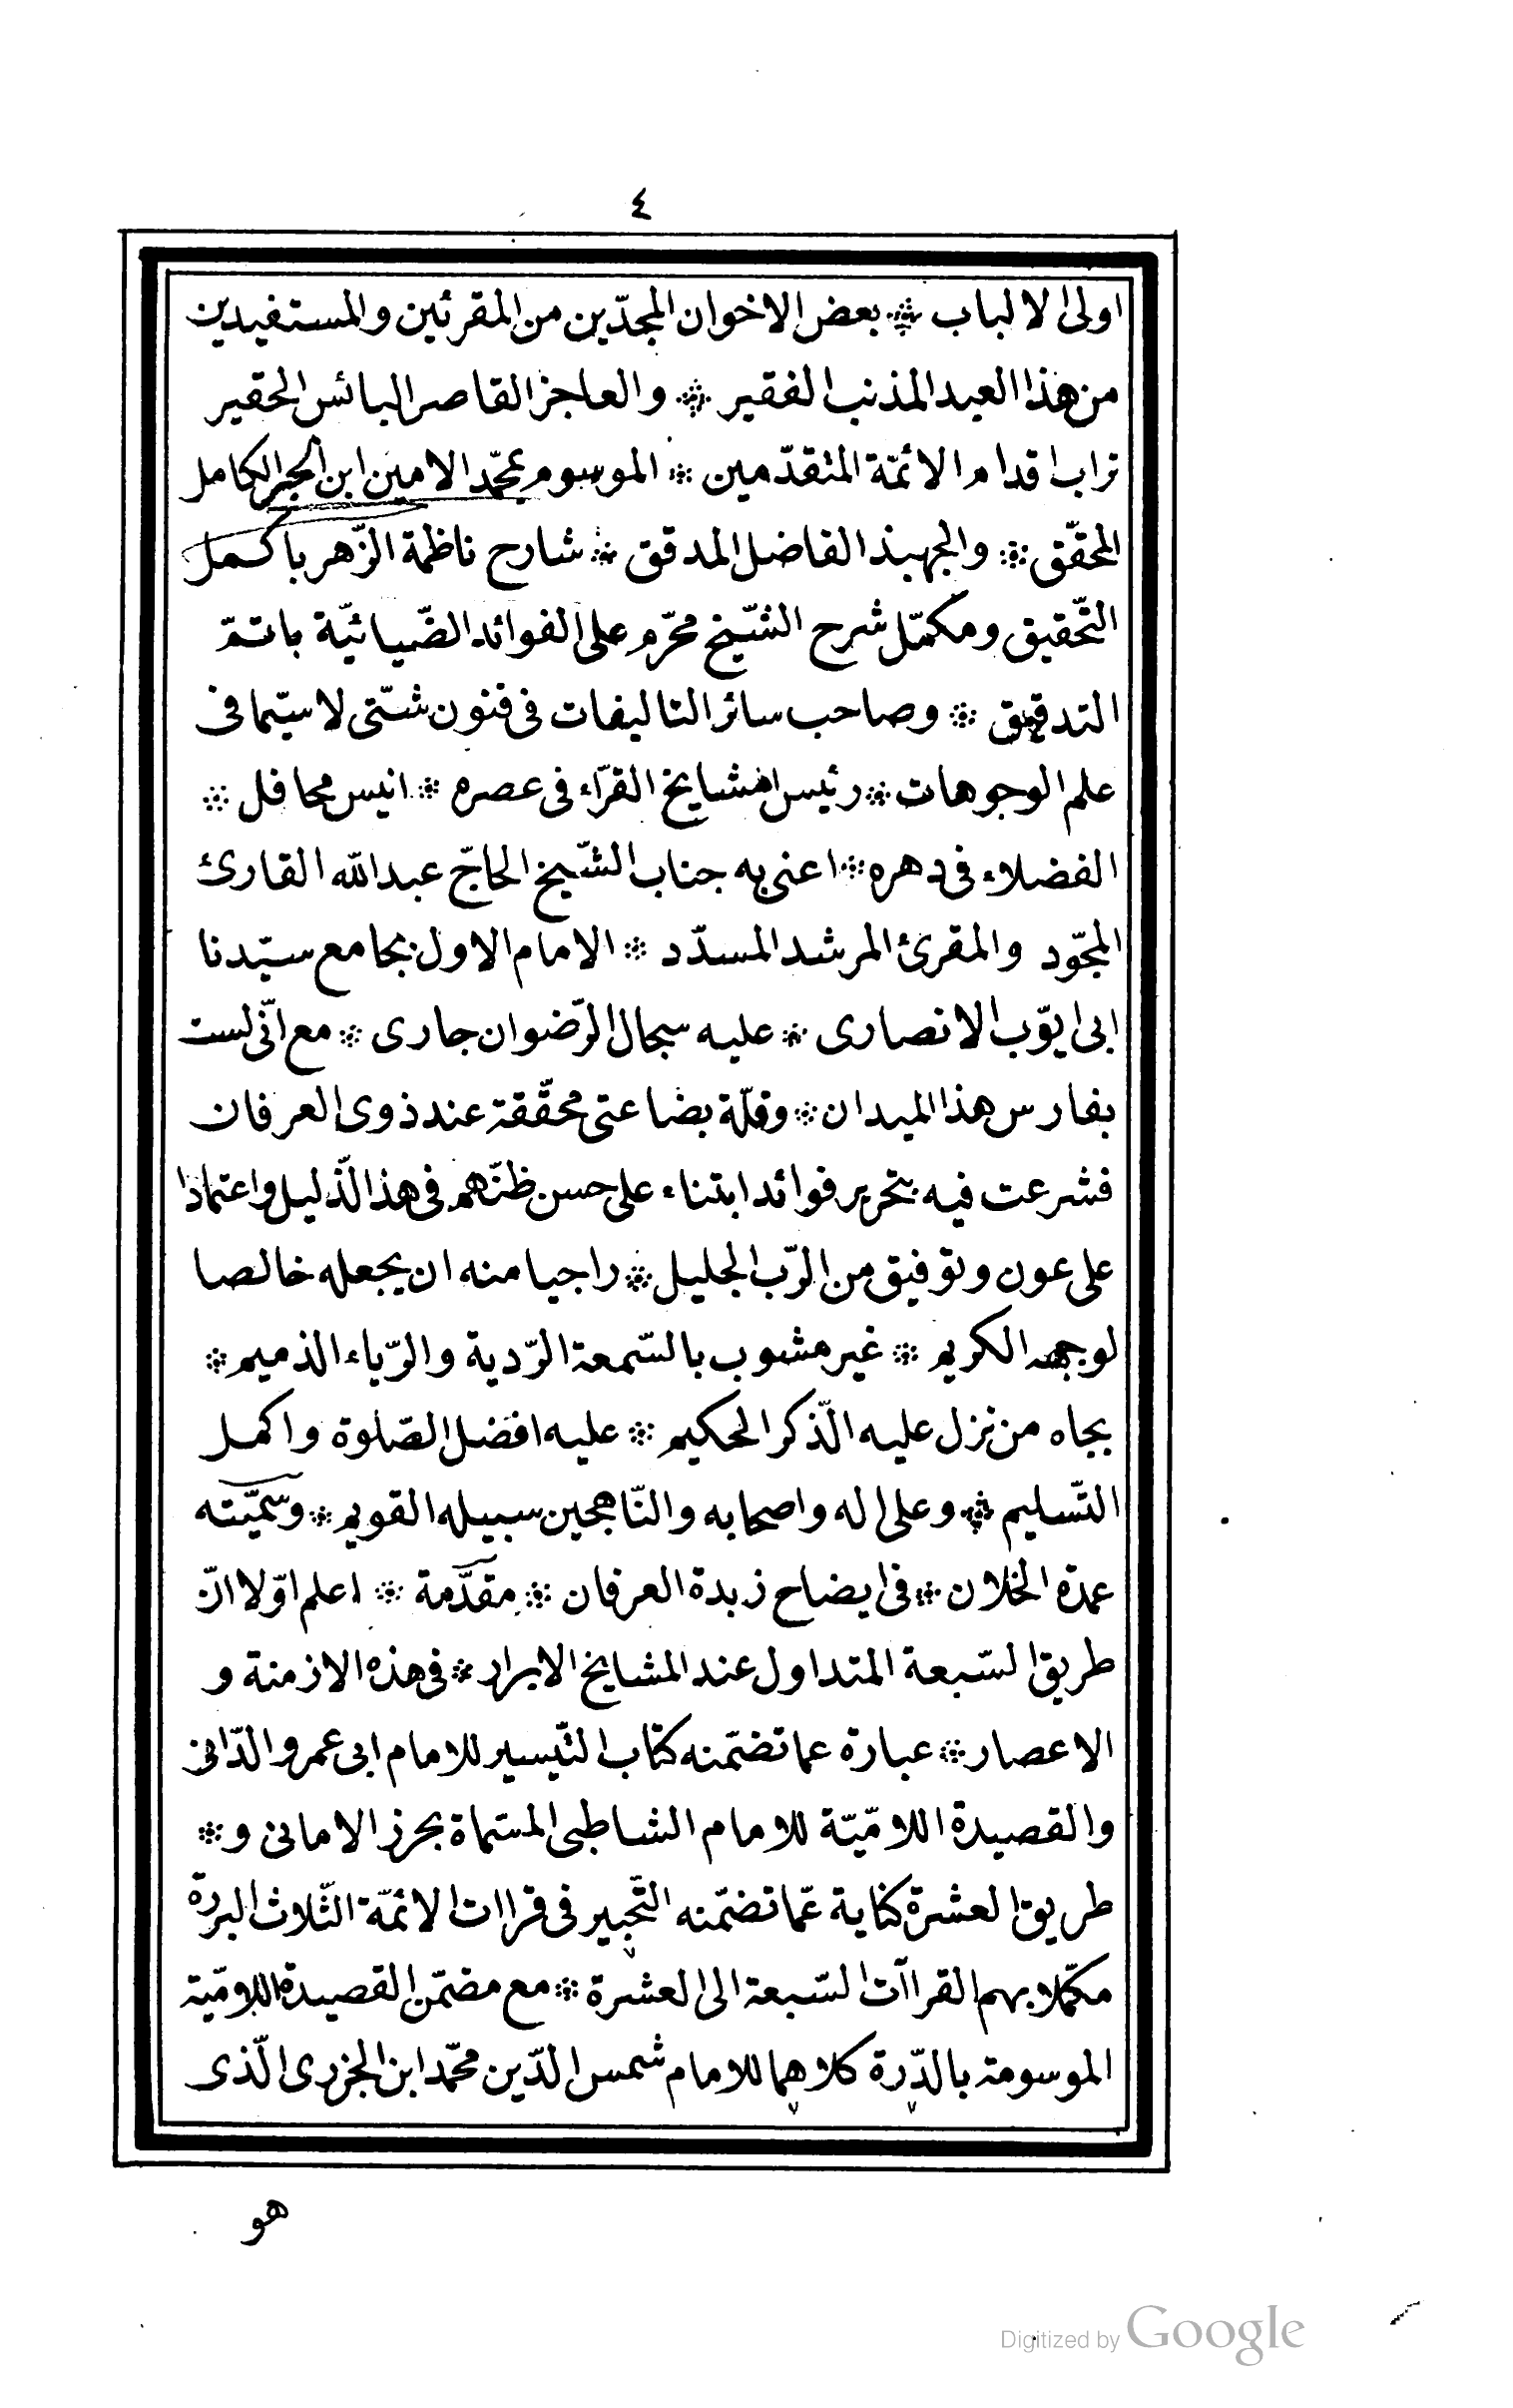 ٤
اولى الالباب ❊ بعض الاخوان المجدّين من المقرئين والمستفيدين
من هذا العبد المذنب الفقير ❊ والعاجز القاصر البائس الحقير
تراب اقدام الائمّة المتقدّمين ❊ الموسوم بمحمّد الامين ابن الحبر الكامل
المحقّق ❊ والجهبذ الفاضل المدقق ❊ شارح ناظمة الزّهر باكمل
التّحقيق ومكمّل شرح الشّيخ محرّم على الفوائد الضّيائيّة باتمّ
التدقيق ❊ وصاحب سائر التاليفات فى فنون شتّى لاسيّما فى
علم الوجوهات ❊ رئيس المشايخ القرّاء فى عصره ❊ انيس محافل ❊
الفضلاء فى دهره ❊ اعنى به جناب الشّيخ الحاجّ عبد الله القارئ
المجوّد والمقرئ المرشد المسدّد ❊ الامام الاول بجامع سيّدنا
ابى ايّوب الانصارى ❊ عليه سجال الرّضوان جارى ❊ مع انّى لست
بفارس هذا الميدان ❊ وقلّة بضاعتى محقّقة عند ذوى العرفان
فشرعت فيه بتحرير فوائد ابتناء على حسن ظنّهم فى هذا الذّليل واعتمادا
على عون وتوفيق من الرّب الجليل ❊ راجيا منه ان يجعله خالصا
لوجهه الكريم ❊ غير مشوب بالسّمعة الرّدية والرّياء الذميم ❊
بجاه من نزل عليه الذّكر الحكيم ❊ عليه افضل الصّلوة واكمل
التّسليم ❊ وعلى اله واصحابه والنّاهجين سبيله القويم ❊ وسمّيته
عمدة الخلان ❊ فى ايضاح زبدة العرفان ❊ مقدّمة ❊ اعلم اوّلا انّ
طريق السّبعة المتداول عند المشايخ الابرار ❊ فى هذه الازمنة و
الاعصار ❊ عبارة عما تضمّنه كتاب التّيسير للامام ابى عمرو الدّانى
والقصيدة اللاميّة للامام الشاطبى المسمّاة بحرز الامانى و ❊
طريق العشرة كناية عمّا تضمّنه التّحبير فى قراات الائمّة الثّلاث البررة
مكمّلا بهم القراآت السّبعة الى العشرة ❊ مع مضمّن القصيدة اللاميّة
الموسومة بالدّرة كلاهما للامام شمس الدّين محمّد ابن الجزرى الّذى
هو
Digitized by Google